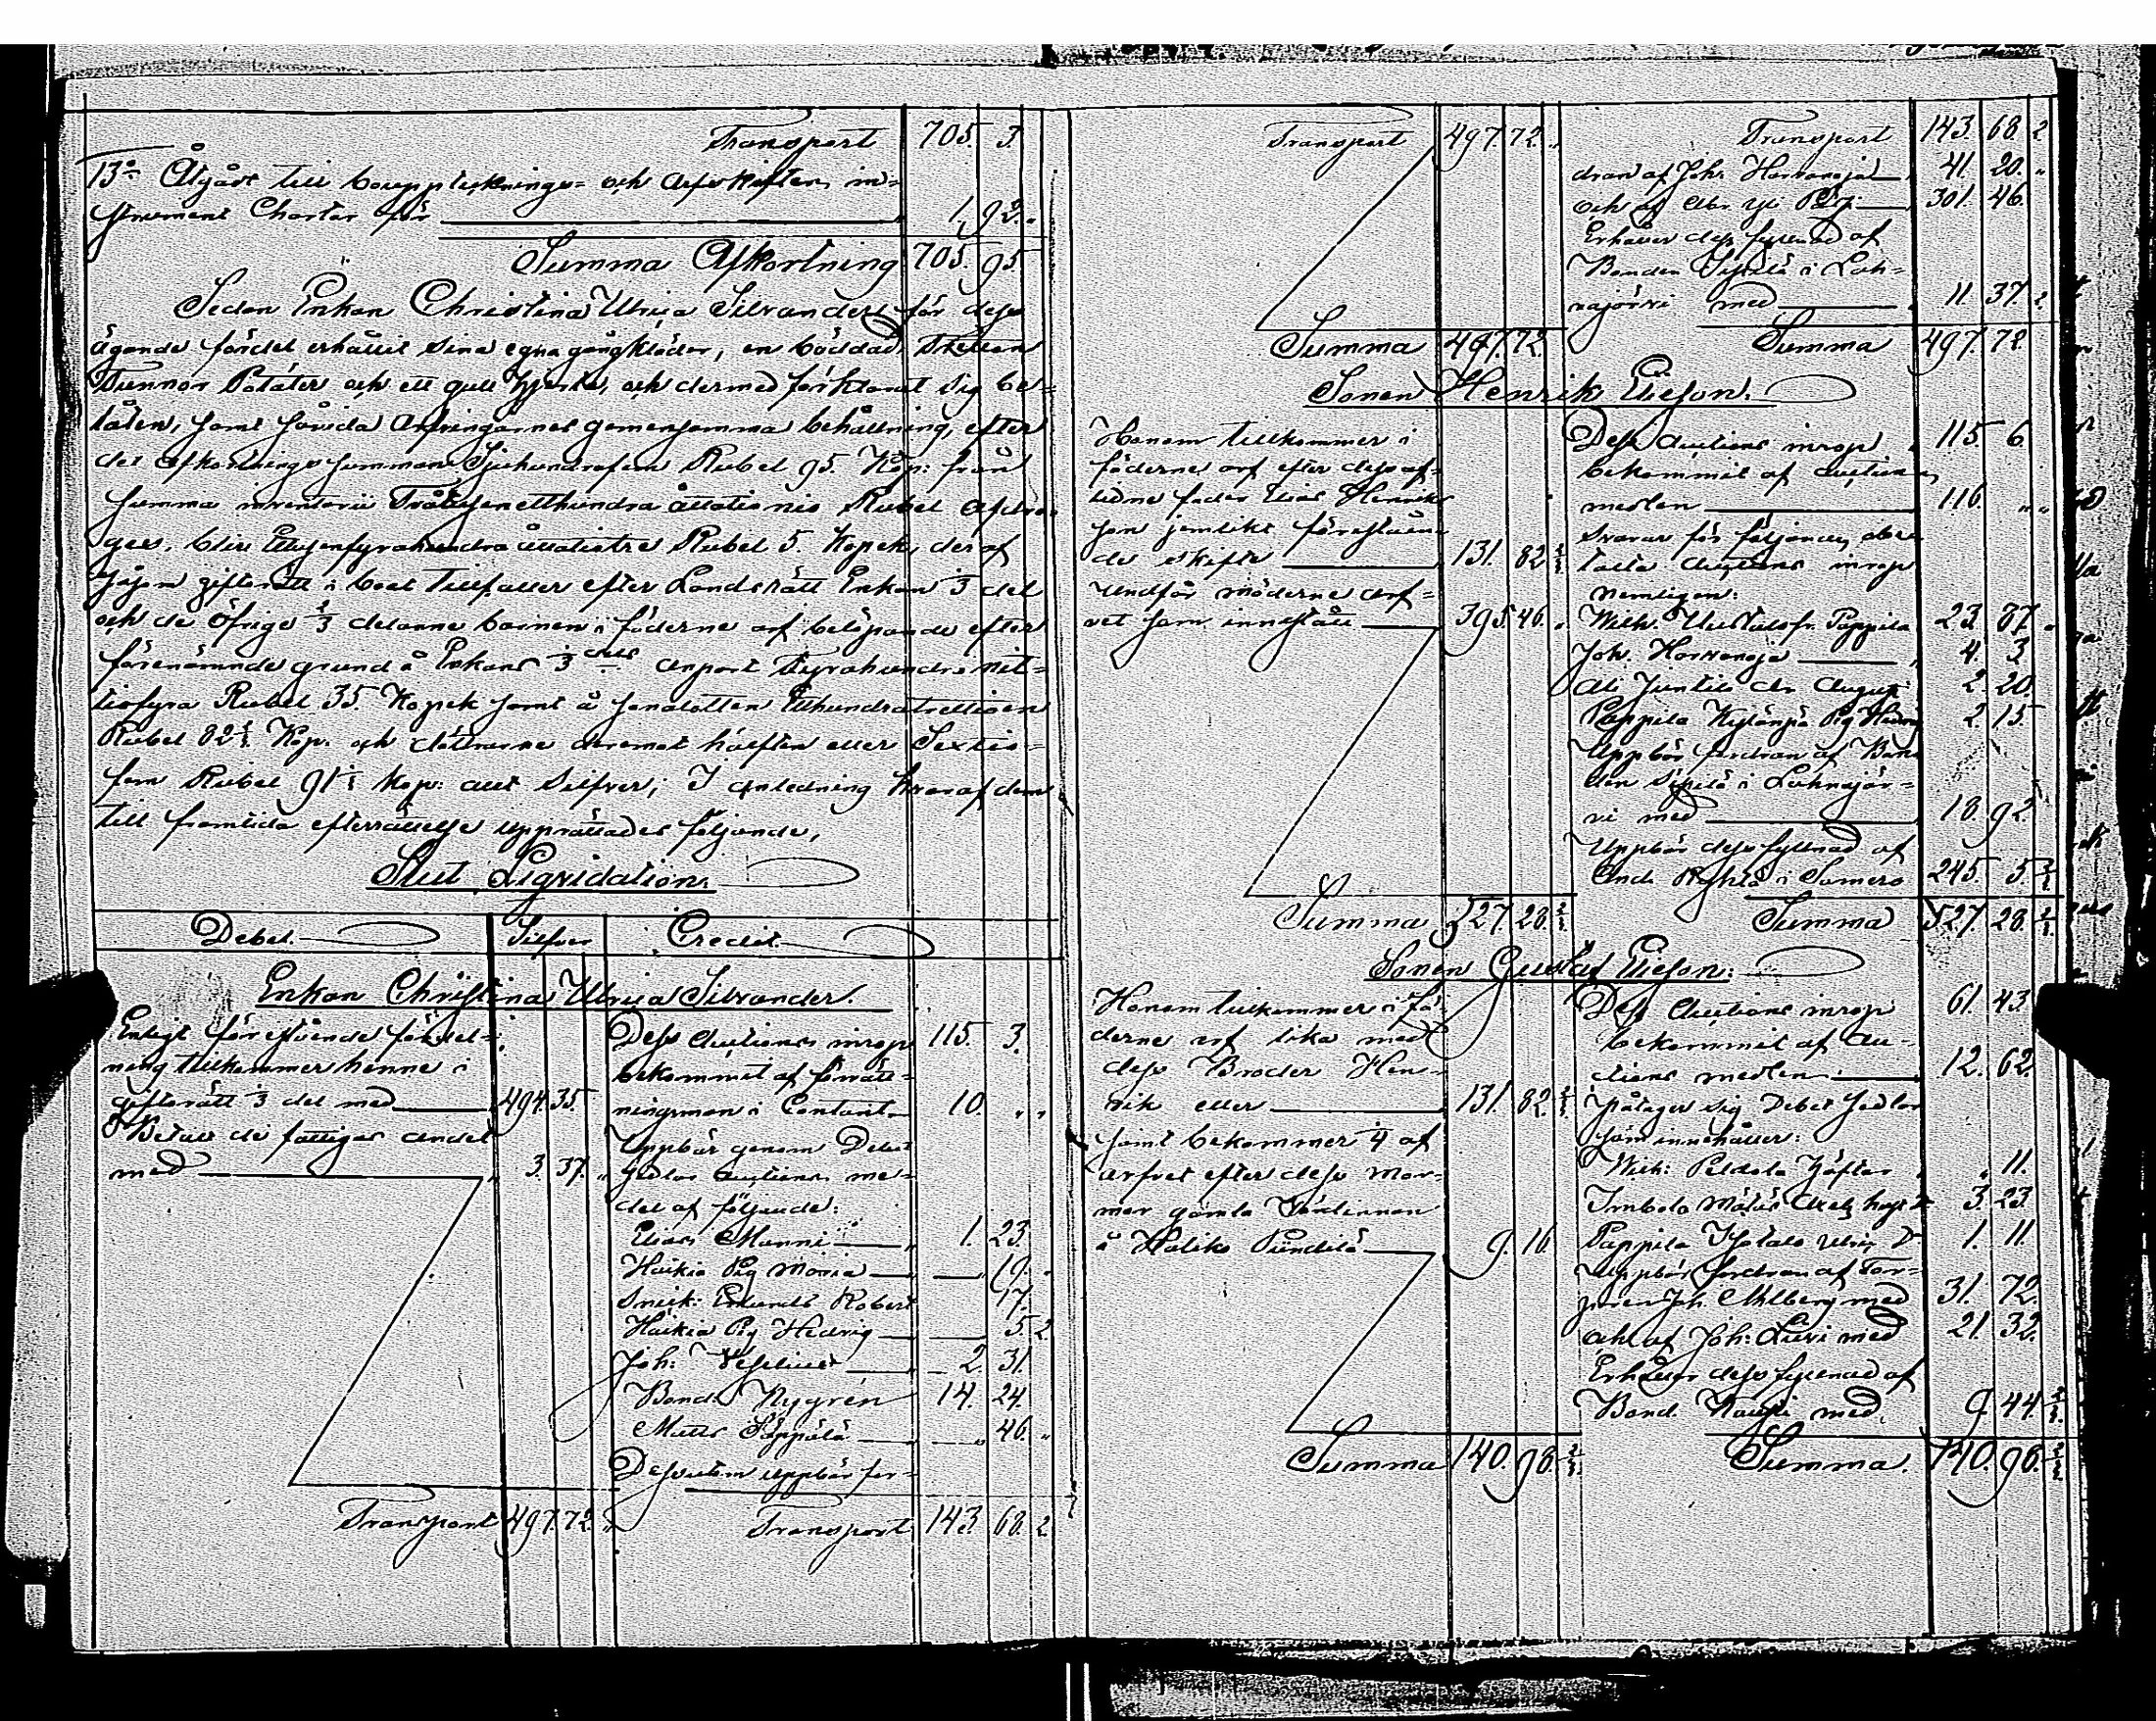 Transport 705. 3.
13:o Åtgår till bouppteknings- och Arfskiften in-
strument Charter för 1. 92.
Summa Afkortning 705. 95.
Sedan Enkan Christina Ulrica Silvander för dess
ägande fördel erhållit sina egna gångkläder, en bäddad
Tunnor Potäter och ett gult och dermed förklarat sig be-
låten, samt såvida Arfvingarnes gemensamma behållning, efter
det Afkortnings summan Sjuhundrafem Rubel 95. Kop: från
summa inventarii Tvåtusenetthundra åttationio Rubel afdra-
ges, blir Ettusenfyrahundra åttatiotre Rubel 5. Kopek, der af
såsom giftorätt i boet tillfaller efter Landsrätt Enkan 1/3 del
och de öfrige 2/3 delarne barnen i fäderne arf belöpande efter
förenämnde grund å Enkans 1/3 dels anport Fyrahundra nit-
tiofyra Rubel 35. Kopek samt å sonalotten Etthundratrettioen
Rubel 82 2/3 Kop. och döttrarne deremot hälften eller Sextio-
fem Rubel 91 1/3 Kop: allt Silfver; I anledning hvaraf dem
till framtida efterrättelse upprättades följande,
Slut Liqvidation.
Debet. Silfver Credit.
Enkan Christina Ulrica Silvander.
Enligt förestående fördel-
ning tillkommer henne i
giftorätt 1/3 del med 494. 35.
Betalt de fattigas andel
med 3. 37. "
Transport 497. 72. "
Dess Auctions inrop 115. 3.
bekommit af förrätt-
ningsman i Contant 10. " "
Uppbär genom Debet
Sedlar Auctions me-
del af följande:
Elias Manni 1. 23.
Haikia Pig Maria 19. "
Snick: Robert 17.
Haikia Pig Hedvig 5. 2
Joh: 2. 31.
Bond. Nygrén 14. 24.
Matts Säppälä 46. "
Dessutom uppbär for-
Transport 143. 68. 2
Transport 497. 72. "
Summa 497. 72.
Transport 143. 68. 2
dran af Joh: Harvanoja 41. 20. "
och af Abr. 301. 46.
Erhåller dess fyllnad af
Bonden i Lah-
najärvi med 11. 37. 2
Summa 497. 72.
Sonen Henrik Eliesson.
Honom tillkommer i
fäderne arf efter dess af-
lidne fader Elias Henriks-
son jemlikt förestāen-
de skifte 131. 82 2/3
Undfår möderne arf-
vet som innestått 395. 46. "
Summa 527. 28. 2/3
Dess Auctions inrop 115. 6.
bekommit af Auctions
medlen 116. " "
Svarar för följande,
Auctions inrop
nemligen:
Wilh. Pappila 23. 87. "
Joh. Harvanoja 4. 3
Ali Juntila 2. 20.
Pappila 2. 15.
Uppbär fordran af Bon-
den i Lahnajär-
vi med 18. 92.
Uppbär dess fyllnad af
i Somero 245. 5. 2/3
Summa 527. 28. 2/3
Sonen Gustaf Eliesson.
Honom tillkommer i fä-
derne arf lika med
dess Broder Hen-
rik eller 131. 82. 2/3
samt bekommer 1/4 af
arfvet efter dess mor-
mor gamla Värdinnan
å Haliko 9. 16.
Summa 140. 98. 2/3
Dess Auctions inrop 61. 43.
bekommit af Au-
ctions medlen 12. 62.
påtager sig Debet Sedlar
som innehåller:
Wilh: Peldola " 11.
3. 23.
Pappila 1. 11.
Uppbär fordran af Tor-
paren Joh. Ahlberg med 31. 72.
och af Joh: med 21. 32.
Erhåller dess fyllnad af
Bond. med 9. 44. 2/3
Summa. 140. 98. 2/3